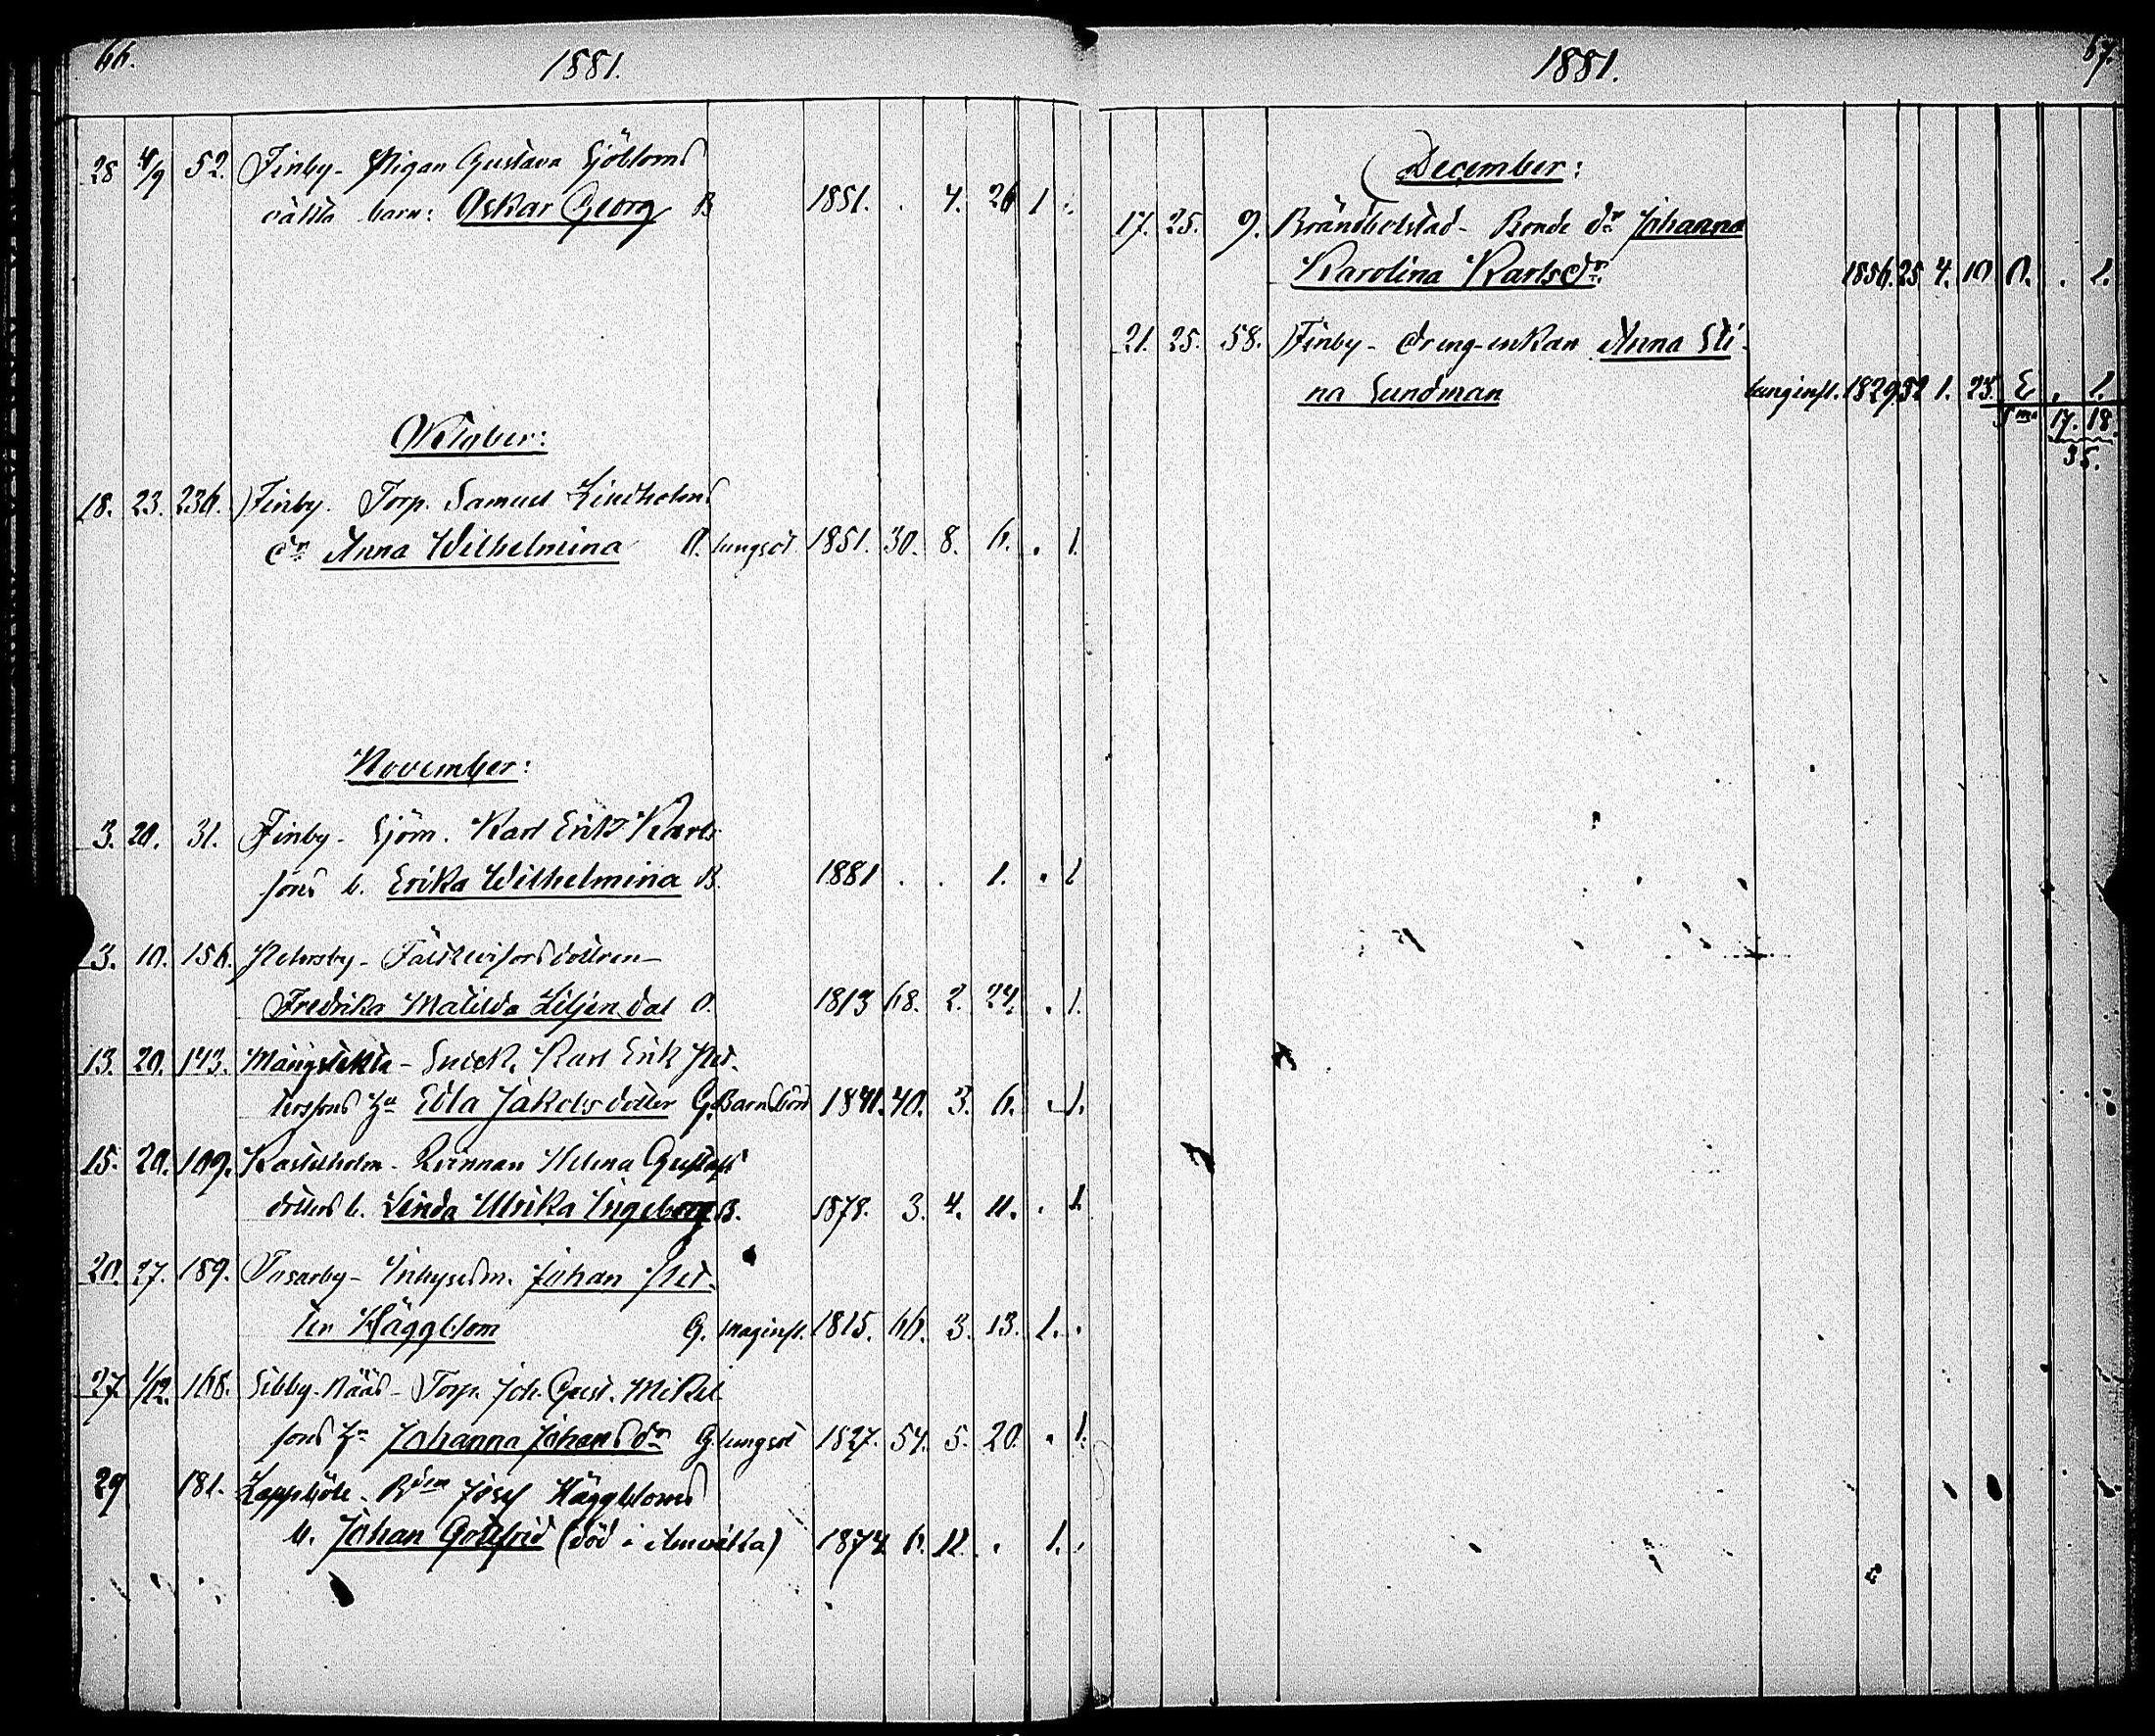 66.
1881.
28 4/9 52. Finby- Pigan Gustava Sjöbloms
oäkta barn: Oskar Georg B 1851. . 4. 26 1 .
Oktober:
18. 23. 236. Finby. Torp. Samuel Lindholms
dr Anna Wilhelmina O. lungsot 1851. 30. 8. 6. . 1.
November:
3. 20. 31. Finby- Sjöm. Karl Erik Karls
sons b. Erika Wilhelmina B. 1881 . . 1. . 1
3. 10. 156. Pehrsby- dottren
Fredrika Matilda Liljendal O. 1813 68. 2. 24. . 1.
13. 20. 143. Mångstekta- Snick. Karl Erik Pet-
terssons hu Edla Jakobsdotter G. Barnsbörd 1841. 40. 3. 6. . 1.
15. 20. 109. Kastelholm- Kvinnan Helena Gustafs
dotters b. Linda Ulrika Ingeborg B. 1878. 3. 4. 11. . 1
20. 27. 189. Tosarby- Inhysesm. Johan Pet-
ter Häggblom G. maginfl. 1815. 66. 3. 13. 1. .
27 1/12. 168. Sibby-nääs- Torp. Joh. Gust. Mikel
sons hu Johanna Johansdr G. lungsot 1827. 54. 5. 20. . 1.
29 181. Lappböle- Bdm Josef Häggbloms
b. Johan Gottfrid (död i Amerika) 1874 6. 11. . 1. .
1881.
67.
December:
17. 25. 9. Brändbolstad- Bonde dr Johanna
Karolina Karlsdr. 1856. 25 4. 10 O. . 1.
21. 25. 58. Finby- dreng-enkan Anna Sti-
na Sundman lunginfl. 1829. 52 1. 23. E. . 1.
Sma 17. 18.
35.